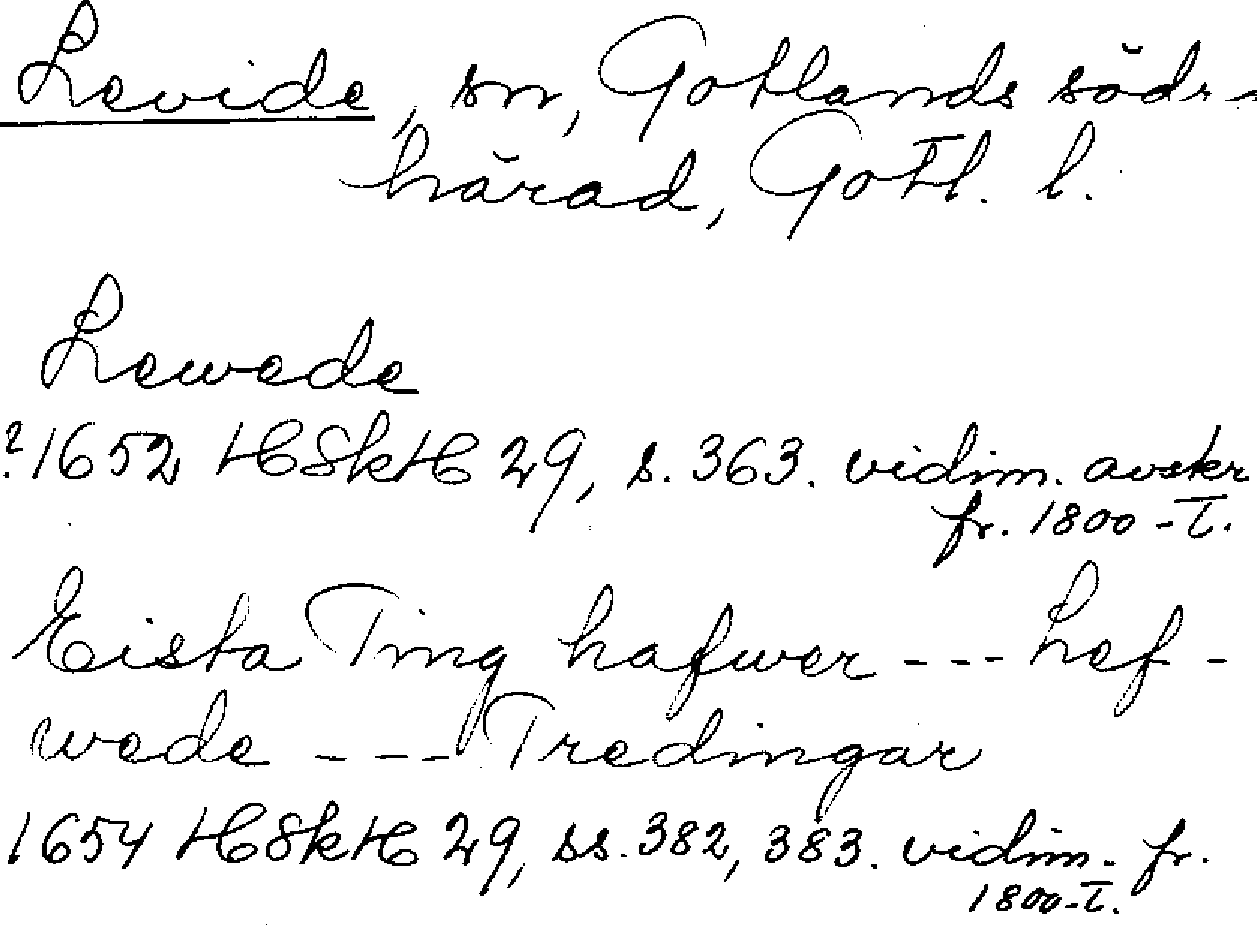 Levide, sn, Gotlands södra
härad, Gotl. l.
Lewede
?1652 HSkH 29, s. 363. vidim. avskr
fr. 1800-t.
Eista Ting hafwer --- Lef-
wede --- Tredingar
1654 HSkH 29, ss. 382, 383. vidim. fr.
1800-t.